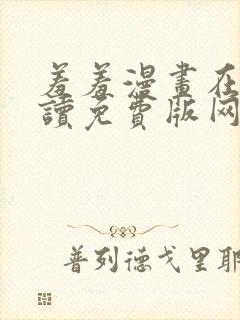 羞羞漫畫在
讀免費版网
普列德戈里耶